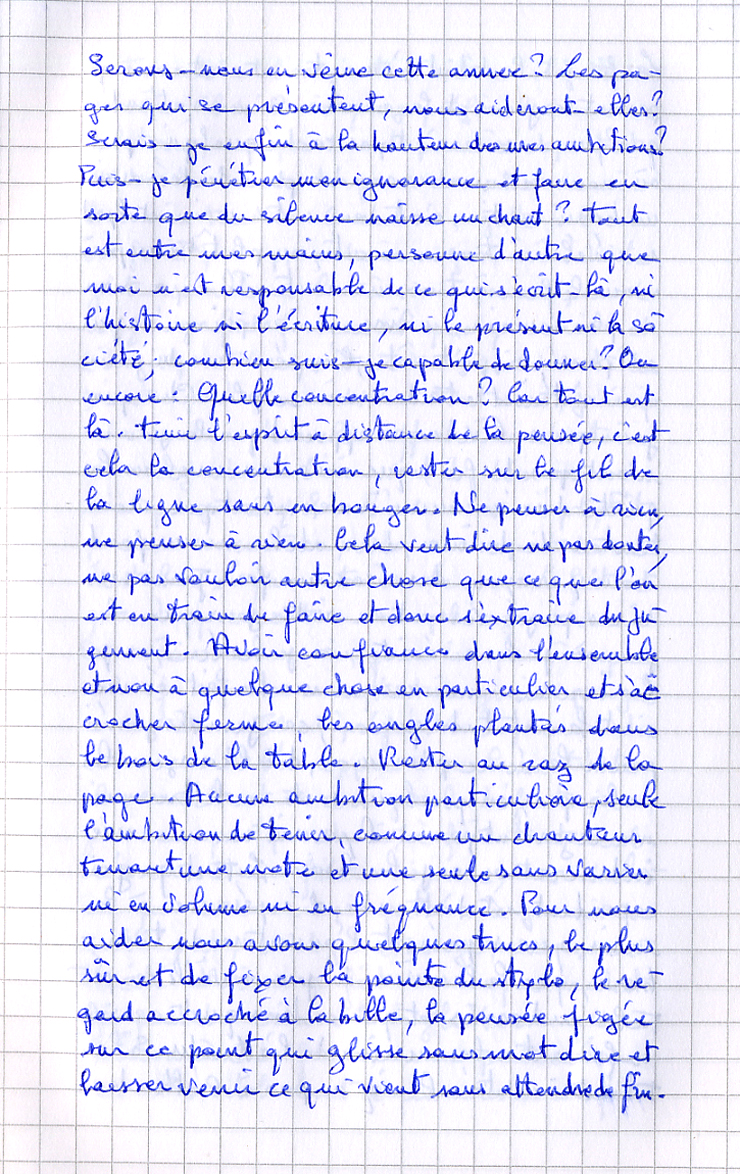 Serons-nous en veine cette année? Les pa-
ges qui se présentent, nous aideront-elles?
Serais-je enfin à la hauteur des mes ambitions?
Puis-je pénétrer mon ignorance et faire en
sorte que du silence naisse un chant? Tout
est entre mes mains, personne d'autre que
moi n'est responsable de ce qui s'écrit-là, ni
l'histoire ni l'écriture, ni le présent ni la so
ciété; combien suis-je capable de donner? Ou
encore: Quelle concentration? Car tout est
là. Tenir l'esprit à distance de la pensée, c'est
cela la concentration, rester sur le fil de
la ligne sans en bouger. Ne penser à rien,
ne penser à rien. Cela veut dire ne pas douter,
ne pas vouloir autre chose que ce que l'on
est en train de faire et donc s'extraire du ju
gement. Avoir confiance dans l'ensemble
et non à quelque chose en particulier et s'ac
crocher ferme, les ongles plantés dans
le bois de la table. Rester au raz de la
page. Aucune ambition particulière, seule
l'ambition de tenir, comme un chanteur
tenant une note et une seule sans varier
ni en volume ni en fréquance. Pour nous
aider nous avons quelques trucs, le plus
sûr et de fixer la pointe du stylo, le re-
gard accroché à la bille, la pensée figée
sur ce point qui glisse sans mot dire et
laisser venir ce qui vient sans attendre de fin.